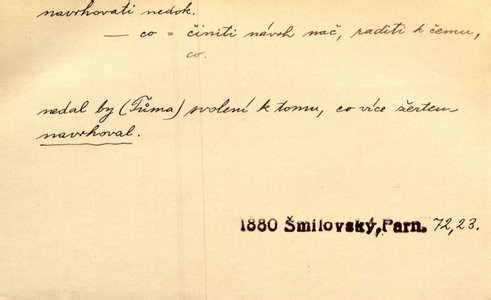 navrhovati nedok.
— co = činiti návrh nač, raditi k čemu,
co.
nedal by (Tůma) svolení k tomu, co více žertem
navrhoval.
1880 Šmilovský, Parn. 72,23.